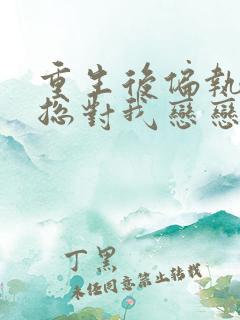 重生後偏執
總對我戀戀
丁墨
未经同意禁止转载